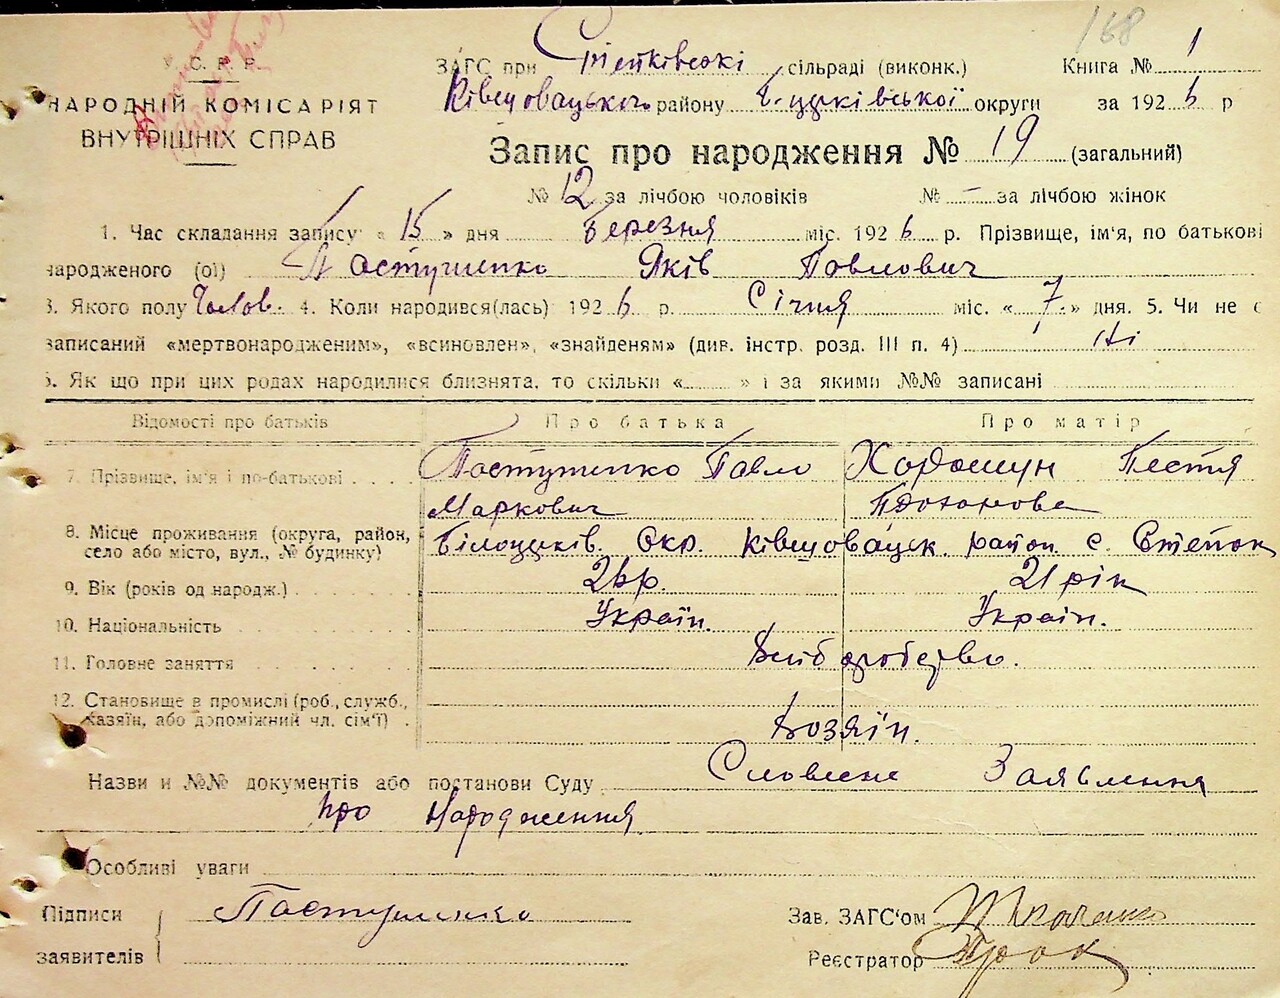 168
У. С. Р. Р.
НАРОДНІЙ КОМІСАРІЯТ
ВНУТРІШНІХ СПРАВ
ЗАГС при Степківські сільраді (виконк.) Книга № 1
Ківшовацького району Б.церківської округи за 1926 р
Запис про народження № 19 (загальний)
№ 12 за лічбою чоловіків № – за лічбою жінок
1. Час складання запису « 15 » дня Березня міс. 1926 р. Прізвище, ім'я, по батькові
народженого (ої) Пастушенко Яків Павлович
3. Якого полу Чолов. 4. Коли народився(лась) 1926 р. Січня міс. « 7 » дня. 5. Чи не є
записаний «мертвонародженим», «всиновлен», «знайденям» (див. інстр. розд. III п. 4) Ні
6. Як що при цих родах народилися близнята, то скільки « » і за якими №№ записані
Відомості про батьків Про батька Про матір
7. Прізвище, ім'я і по-батькові Пастушенко Павло Хорошун
Маркович
8. Місце проживання (округа, район, село або місто, вул., № будинку) Білоцерків. Окр. Ківшовацьк. район с. Степок
9. Вік (років од народж.) 26р. 21 рік
10. Національність Україн. Україн.
11. Головне заняття Хліборобство.
12. Становище в промислі (роб., служб., хазяїн, або допоміжний чл. сім'ї) Хозяїн.
Назви и №№ документів або постанови Суду Словесне Заявлення
про Народження
Особливі уваги
Підписи
заявителів Пастушенко
Зав. ЗАГС'ом Ткаченко
Реєстратор